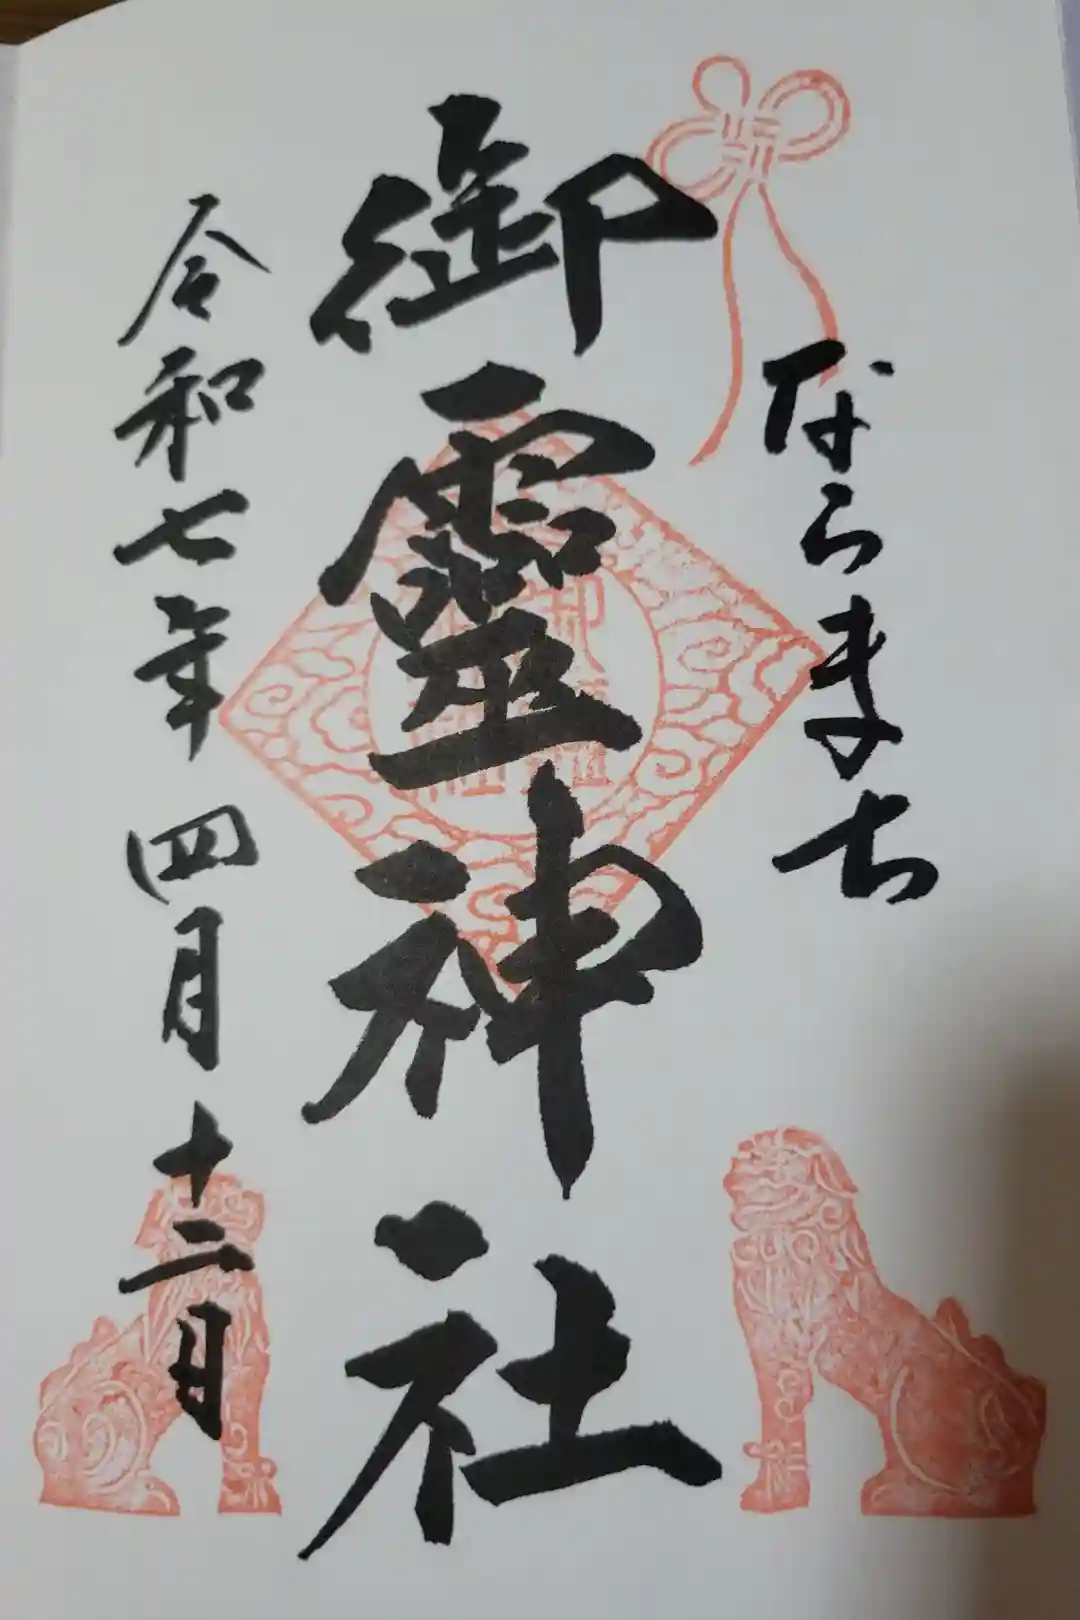 ならまち
御靈神社
令和七年四月十二日